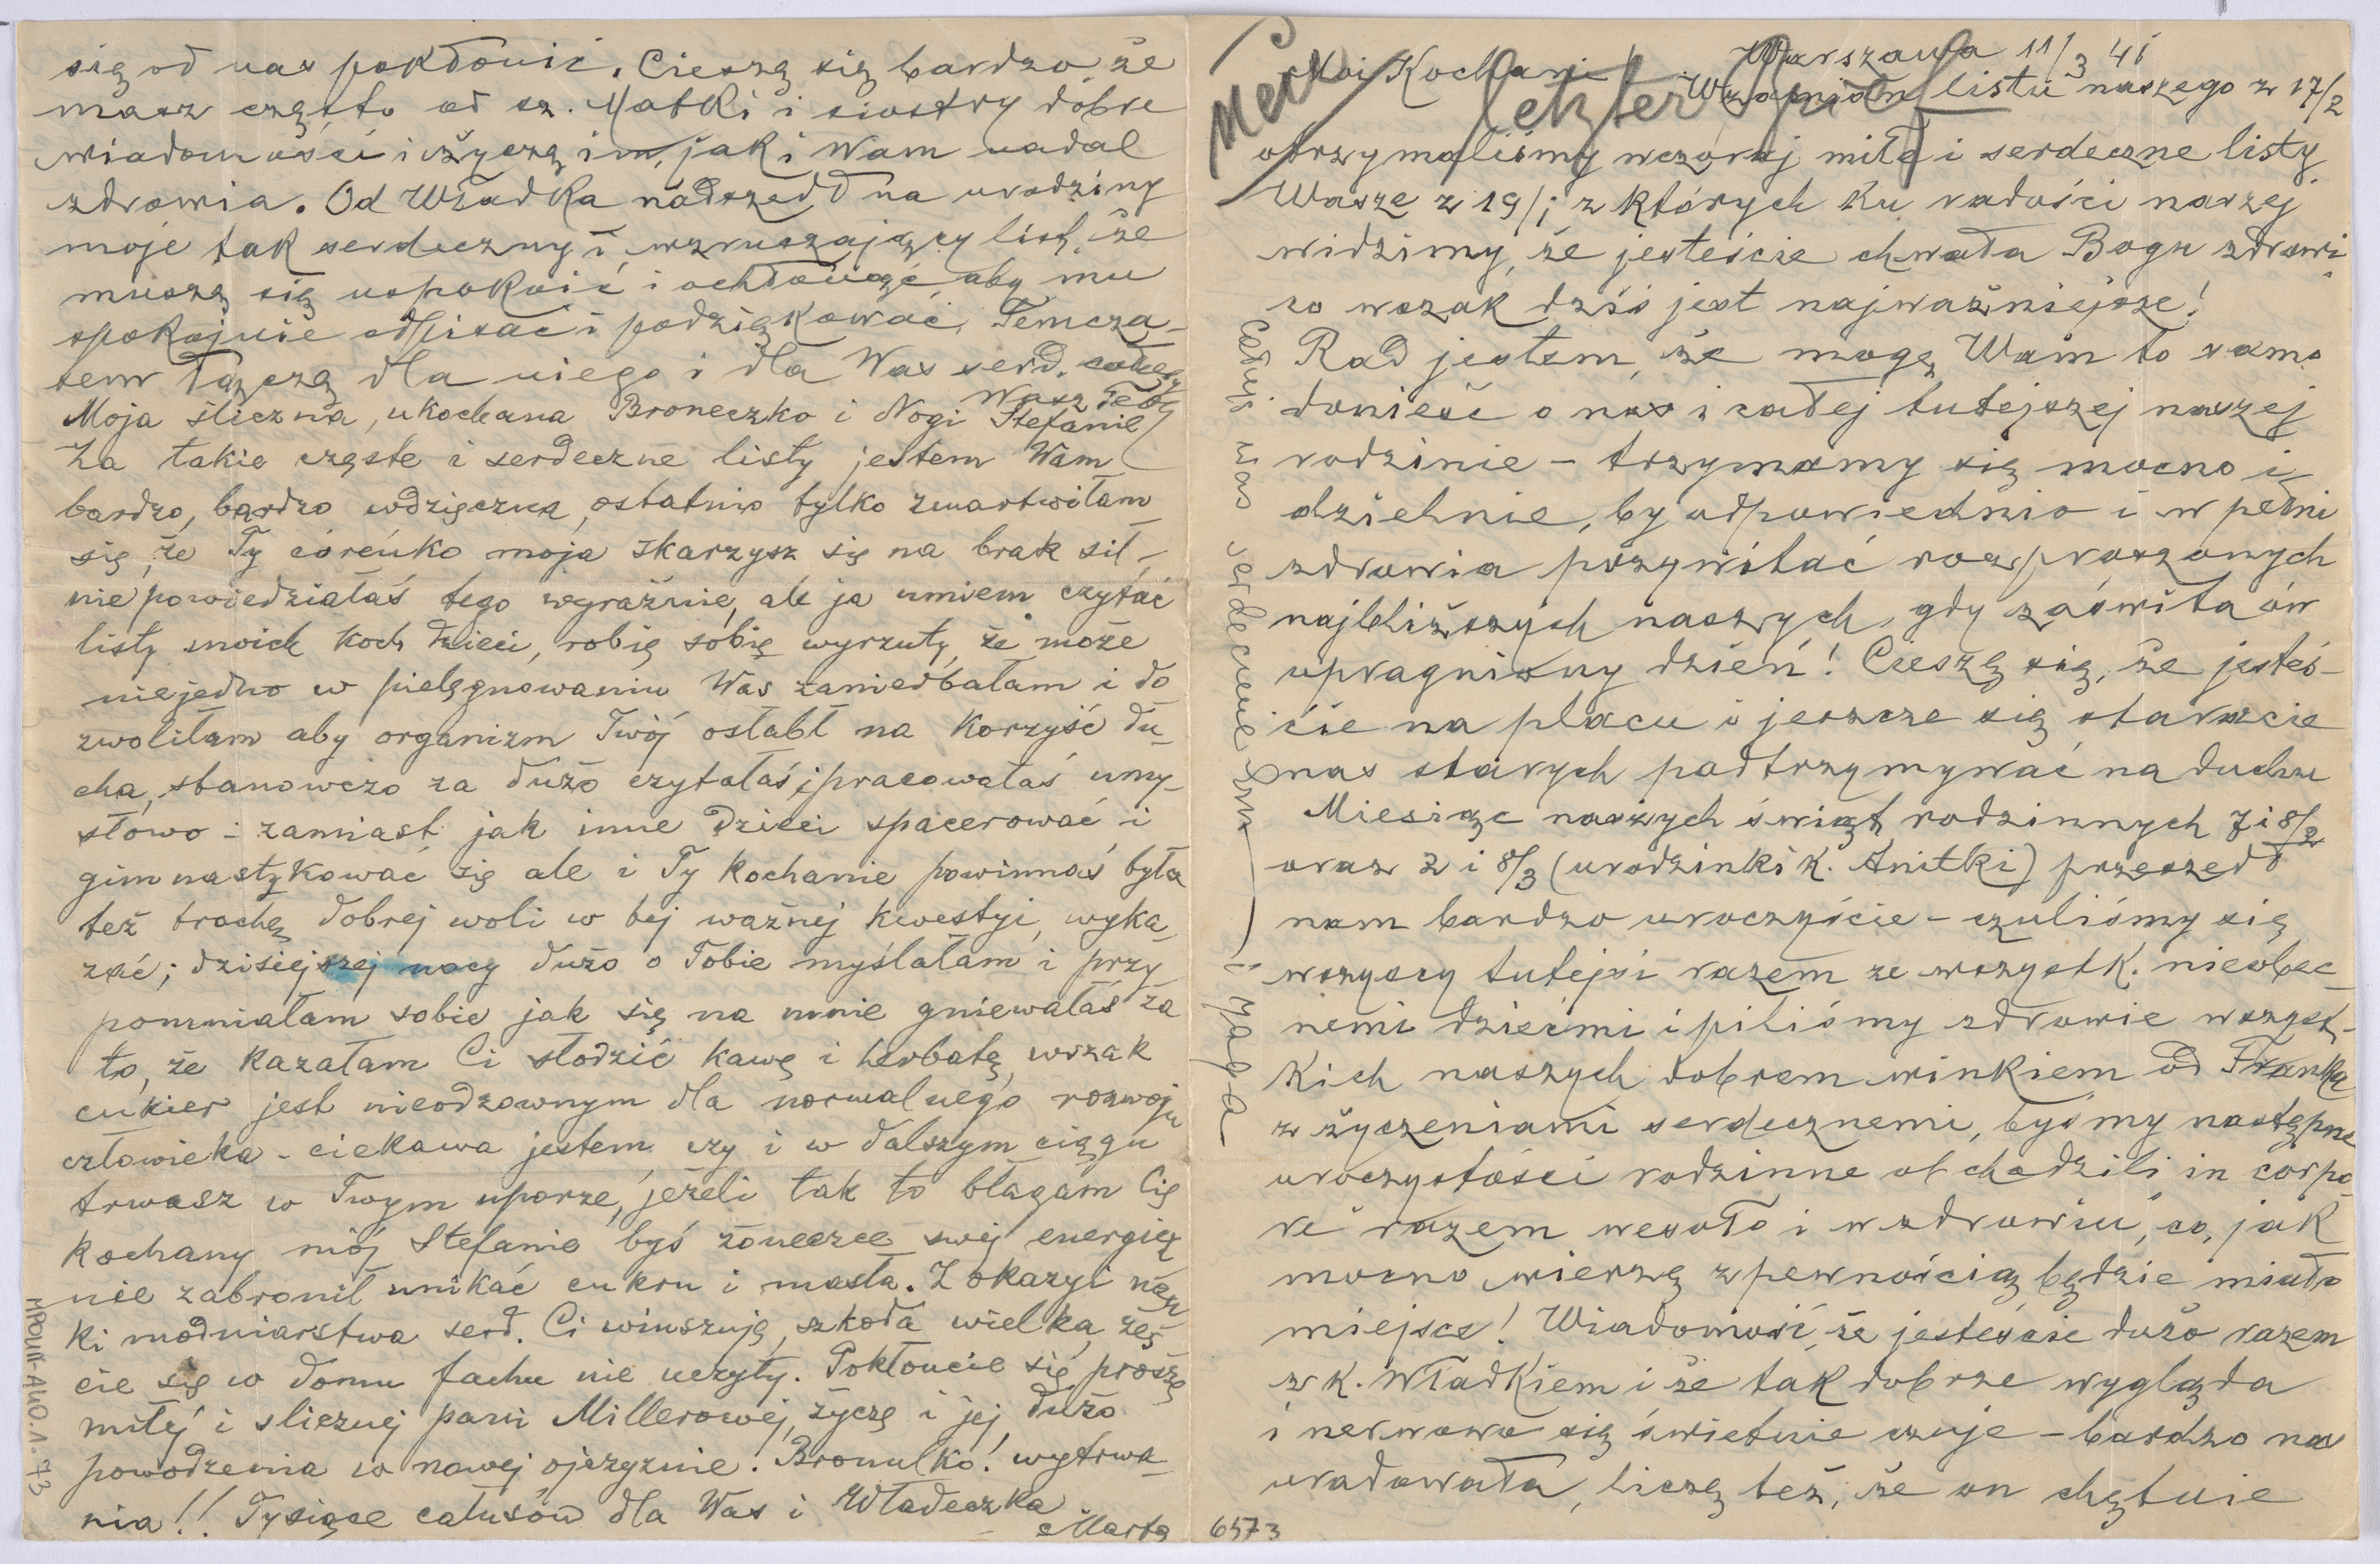 Warszawa 11/3 41
Moi Kochani! Wzamian listu naszego z 17/2
letzter
otrzymaliśmy wczoraj miłe i serdeczne listy
Wasze z 19/; z których ku radości naszej
widzimy, że jesteście chwała Bogu zdrowi
co wszak dziś jest najważniejsze!
Rad jestem, że mogę Wam to samo
donieść o nas i całej tutejszej naszej
rodzinie - trzymamy się mocno i
dzielnie, by odpowiednio i w pełni
zdrowia przywitać rozproszonych
najbliższych naszych, gdy zaświta ów
upragniony dzień! Cieszę się, że jesteś-
cie na placu i jeszcze się staracie
nas starych podtrzymywać na duchu
Miesiąc naszych świąt rodzinnych 7 i 8/2
oraz 2 i 8/3 (urodzinki k. Anitki) przeszedł
nam bardzo uroczyście - czuliśmy się
wszyscy tutejsi razem ze wszystk. nieobec-
nemi dziećmi i piliśmy zdrowie wszyst-
kich naszych dobrem winkiem od Franka
z życzeniami serdecznemi, byśmy następne
uroczystości rodzinne obchodzili in corpo-
re razem wesoło i w zdrowiu, co, jak
mocno wierzę z pewnością będzie miało
miejsce! Wiadomość, że jesteście dużo razem
z k. Władkiem i że tak dobrze wygląda
i nerwowo się świetnie czuje - bardzo nas
uradowała, liczę też, że on chętnie
Całuję was serdecznie i
6573
się od nas pokłonić. Cieszę się bardzo że
masz często od sz. Matki i siostry dobre
wiadomości i życzę im, jak i Wam nadal
zdrowia. Od Władka nadszedł na urodziny
moje tak serdeczny i wzruszający list, że
muszę się uspokoić i ochłonąć, aby mu
spokojnie odpisać i podziękować. Temcza-
sem łączę dla niego i dla Was serd. całusy
Wasz
Moja śliczna, ukochana Broneczko i Nogi Stefanie
Za takie częste i serdeczne listy jestem Wam
bardzo, bardzo wdzięczna, ostatnio tylko zmartwiłam
się, że Ty córeńko moja skarzysz się na brak sił,
nie powiedziałaś tego wyraźnie, ale ja umiem czytać
listy moich koch dzieci, robię sobie wyrzuty, że może
niejedno w pielęgnowaniu Was zaniedbałam i do
zwoliłam aby organizm Twój osłabł na korzyść du-
cha, stanowczo za dużo czytałaś i pracowałaś umy-
słowo - zamiast jak inne dzieci spacerować i
gimnastykować się ale i Ty kochanie powinnaś była
też trochę dobrej woli w tej ważnej kwestyi, wyka-
zać; dzisiejszej nocy dużo o Tobie myślałam i przy
pomniałam sobie jak się na mnie gniewałaś za
to, że kazałam Ci słodzić kawę i herbatę, wszak
cukier jest nieodzownym dla normalnego rozwoju
człowieka - ciekawa jestem czy i w dalszym ciągu
trwasz w Twym uporze, jeżeli tak to błagam Cię
kochany mój Stefanie byś żoneczce swej energią
nie zabronił unikać cukru i masła. Z okazyi nau
ki modniarstwa serd. Ci winszuję, szkoda wielka, żeś
cie się w domu fachu nie uczyły. Pokłońcie się proszę
miłej i ślicznej pani Millerowej, życzę i jej dużo
powodzenia w nowej ojczyznie. Bronulko! wytrwa-
nia!! Tysiące całusów dla Was i Władeczka
Marta